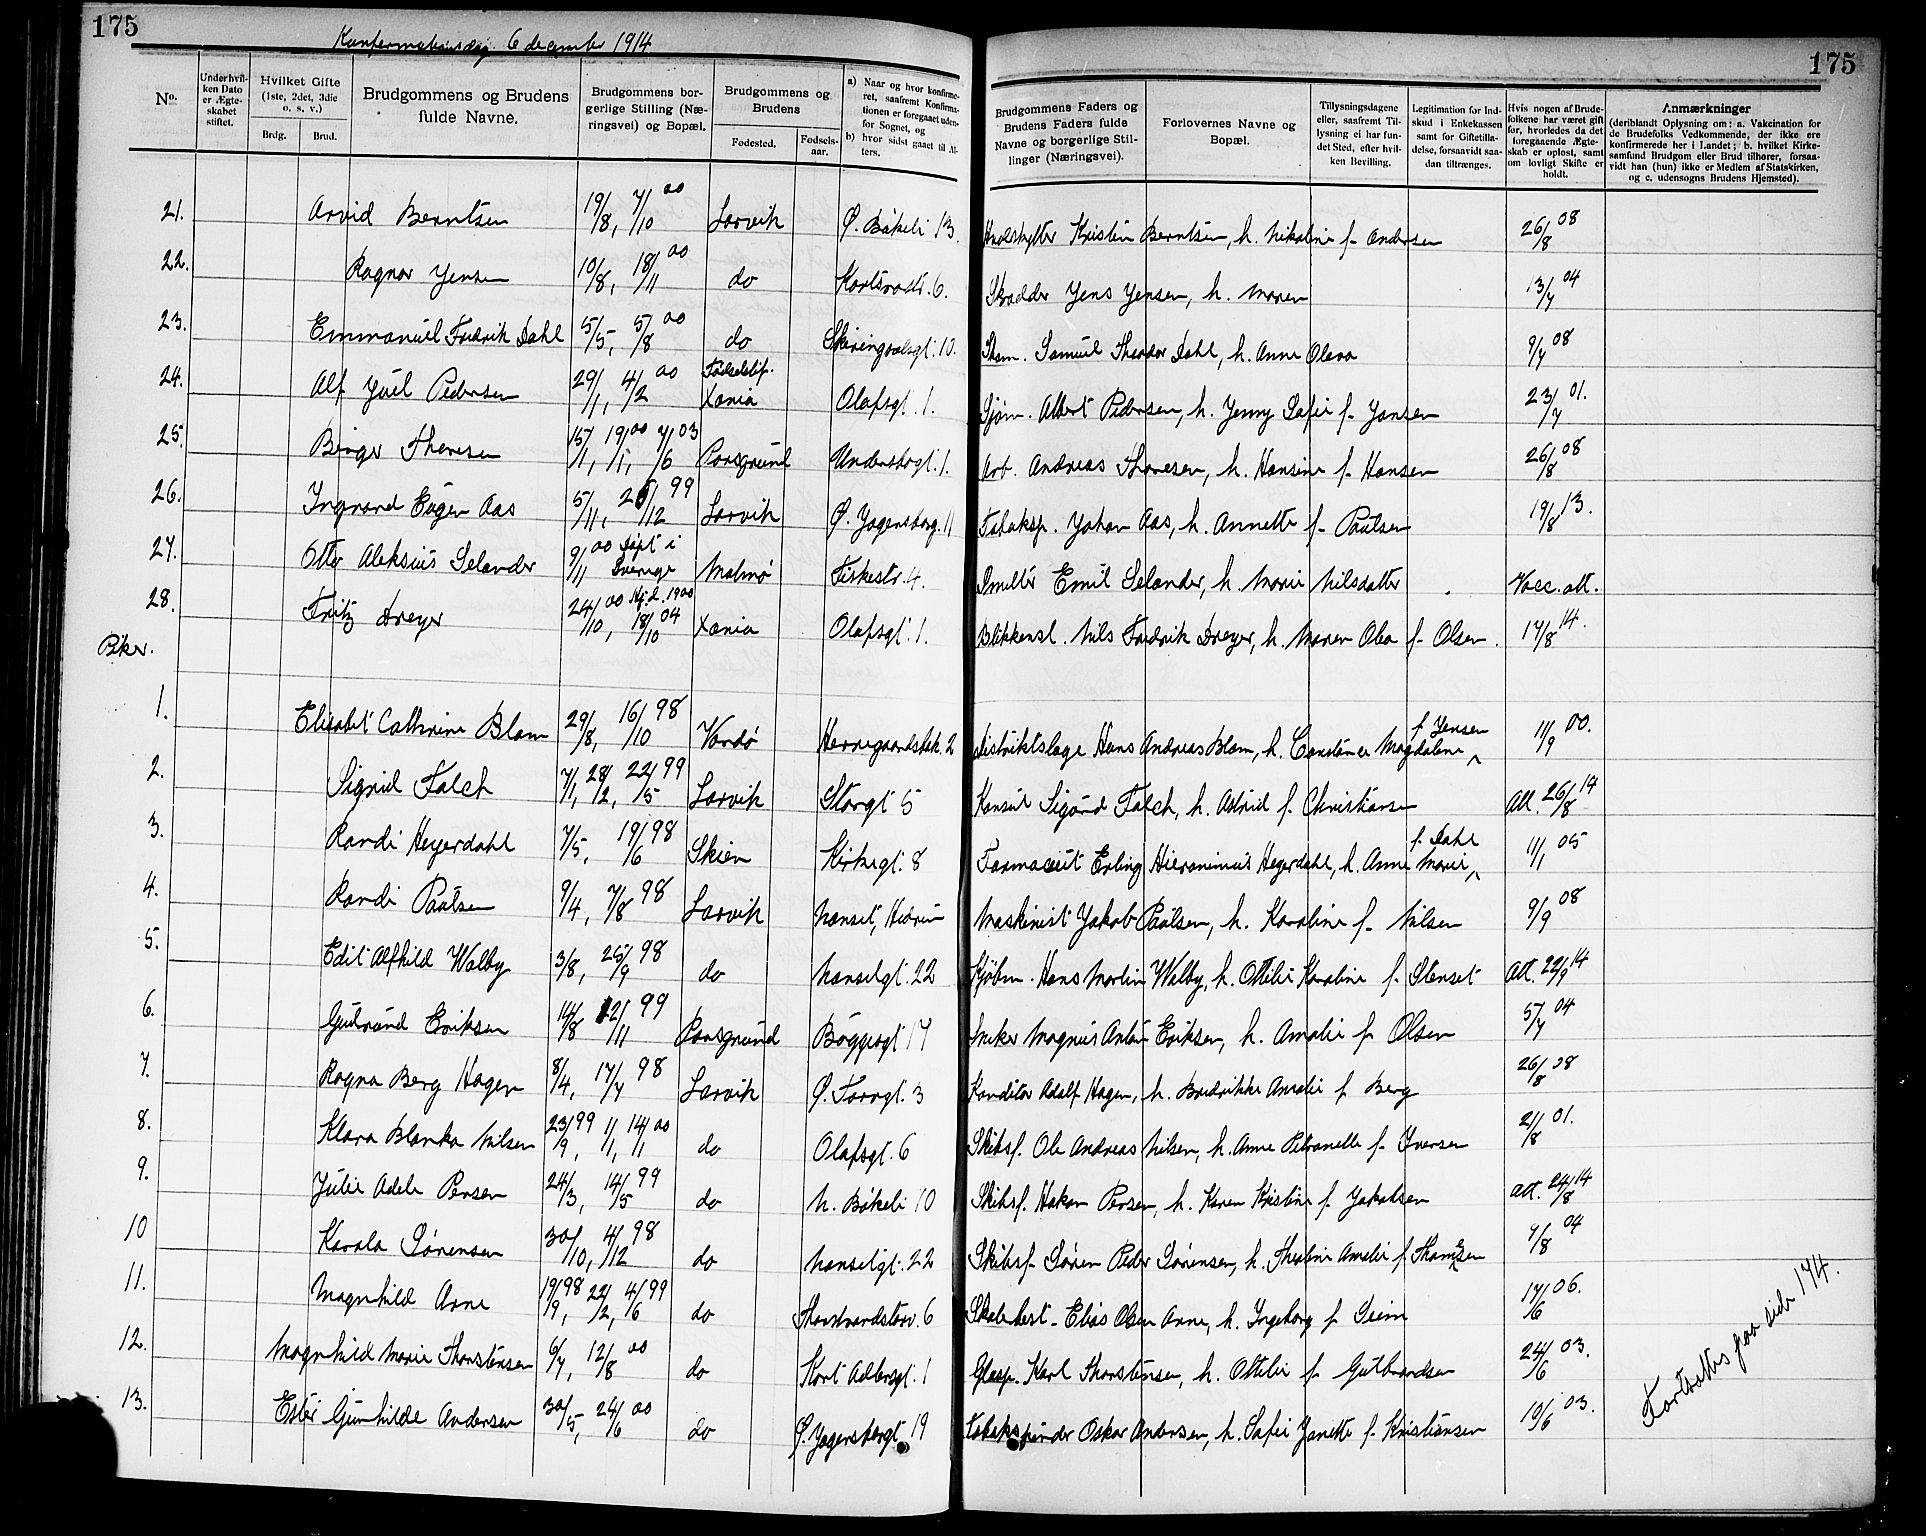 175
Konfirmationsdag 6 december 1914
175
No.
Under hvilken Dato er Ægteskabet stiftet.
Hvilket Gifte (1ste, 2det, 3die o. s. v.)
Brdg. Brud.
Brudgommens og Brudens fulde Navne.
Brudgommens borgerlige Stilling (Næringsvei) og Bopæl.
Brudgommens og Brudens
Fødested. Fødselsaar.
a) Naar og hvor konfirmeret, saafremt Konfirmationen er foregaaet udenfor Sognet, og
b) hvor sidst gaaet til Alters.
Brudgommens Faders og Brudens Faders fulde Navne og borgerlige Stillinger (Næringsvei).
Forlovernes Navne og Bopæl.
Tillysningsdagene eller, saafremt Tillysning ei har fundet Sted, efter hvilken Bevilling.
Legitimation for Indskud i Enkekassen samt for Giftetilladelse, forsaavidt saadan tiltrænges.
Hvis nogen af Brudefolkene har været gift før, hvorledes da det foregaaende Ægteskab er opløst, samt om lovligt Skifte er holdt.
Anmærkninger
(deriblandt Oplysning om: a. Vakcination for de Brudefolks Vedkommende, der ikke ere konfirmerede her i Landet; b. hvilket Kirkesamfund Brudgom eller Brud tilhører, forsaavidt han (hun) ikke er Medlem af Statskirken, og c. udensogns Brudens Hjemsted).
21. Arvid Berntsen 19/8, 7/10 00 Larvik Ø. Bøkeli 13. Kristen Berntsen, h. Nikoline f. Andersen 26/8 08
22. Ragnar Jensen 10/8, 18/11 00 do 6. Skrædder Jens Jensen, h. Maren 13/7 04
23. Emmanuel Fredrik Dahl 5/5, 5/8 00 do Skiringsalsgt. 10. Samuel Theodor Dahl, h. Anne Olava 9/7 08
24. Alf Juel Pedersen 29/1, 4/2 00 Fødselsst. Xania Olafsgt. 1. Sjøm. Albert Pedersen, h. Jenny Sofie f. Jansen 23/7 01.
25. Birger Thoresen 15/1, 19/1 00, 7/6 03 Porsgrund 1. Arb. Andreas Thoresen, h. Hansine f. Hansen 26/8 08
26. Ingvard Eugen Aas 5/11, 26/12 99 Larvik Ø. Jegersborg. 11 Tobaksp. Johan Aas, h. Annette f. Paulsen 19/8 13.
27. Otto Aleksius Selander 9/11 00 døpt i Sverige Malmø Fiskestr. 4. Emil Selander, h. Marie Nilsdatter Vacc. att.
28. Fritz Dreyer 24/10 00 Hj.d. 1900 18/10 04 Xania Olafsgt. 1. Blikkensl. Nils Fredrik Dreyer, h. Maren Olea f. Olsen. 17/8 14.
Piker.
1. Elisabet Cathrine Blom 29/8, 16/10 98 Vardø Herregaardsbak. 2 Distriktslæge Hans Andreas Blom, h. Constance Magdalene f. Jensen 11/9 00.
2. Sigrid Falch 7/1, 28/2, 22/5 99 Larvik Storgt 5 Konsul Sigurd Falch, h. Astrid f. Christiansen Att. 26/8 14
3. Randi Heyerdahl 7/5, 19/6 98 Skien Kirkegt. 8 Farmaceut Erling Hieronimus Heyerdahl, h. Anne Marie f. Dahl 11/1 05
4. Randi Paulsen 9/4, 7/8 98 Larvik Nanset, Hedrum Maskinist Jakob Paulsen, h. Karoline f. Nilsen 9/9 08
5. Edit Alfhild Walby 3/8, 25/9 98 do Nansetgt. 22 Kjøbm. Hans Martin Walby, h. Ottilie Karoline f. Stenset Att. 22/9 14
6. Gudrund Eriksen 14/8 12/11 99 Porsgrund Bøggesgt 17 Snekker Magnus Anton Eriksen, h. Amalie f. Olsen 5/7 04
7. Ragna Berg Hagen 8/4, 17/7 98 Larvik Ø. Torvgt. 3 Konditor Adolf Hagen, h. Amalie f. Berg 26/8 08
8. Klara Blanka Nilsen 23/9 99, 1/1, 14/1 00 do Olafsgt. 6 Skibsf. Ole Andreas Nilsen, h. Anne Petronelle f. Iversen 21/8 01.
9. Julie Adele Persen 24/3, 14/5 99 do N. Bøkeli 10 Skibsf. Hakon Persen, h. Karen Kristine f. Jakobsen Att. 24/8 14
10 Karola Sørensen 30/10, 4/12 98 do Nansetgt. 22 Skibsf. Søren Peder Sørensen, h. Amalie f. Thomesen 9/8 04
11. Magnhild Arne 19/9 98, 22/2, 4/6 99 do 6 Skolebest. Elias Olsen Arne, h. Ingeborg f. Seim 17/6 06.
12. Magnhild Marie Thorstensen 6/7, 12/8 00 do Kort Adlersgt. 1 Glasp. Karl Thorstensen, h. Ottilie f. Gulbrandsen 24/6 03.
13. Ester Gunhilde Andersen 30/5, 24/6 00 do Ø. Jegersborgt. 19 Tobakspinder Oskar Andersen, h. Sofie Janette f. Kristiansen 10/6 03.
Fortsættes paa side 174.